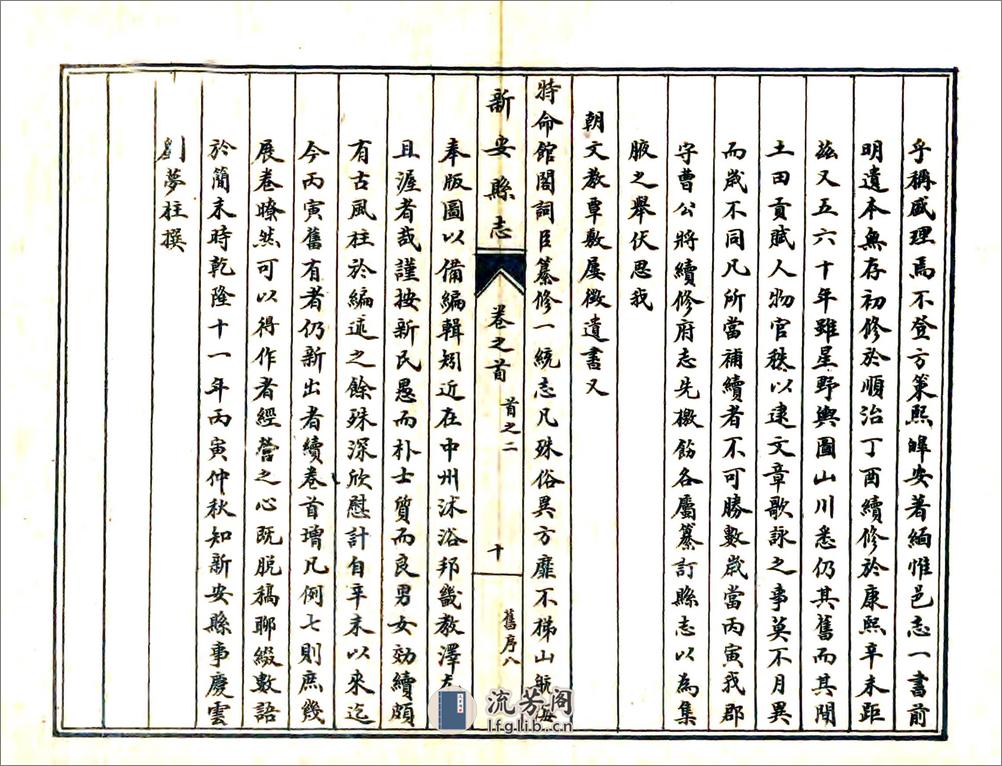 乎稱盛理焉不登方策熙皞安著緬惟邑志一書前
明遺本無存初修於順治丁酉續修於康熙辛未距
茲又五六十年雖星野輿圖山川悉仍其舊而其間
土田貢賦人物官秩以逮文章歌詠之事莫不月異
而歲不同凡所當補續者不可勝數歲當丙寅我郡
守曹公將續修府志先檄飭各屬纂訂縣志以為集
腋之舉伏思我
朝文教覃敷屢徵遺書又
特命館閣詞臣纂修一統志凡殊俗異方靡不梯山航海
新安縣志 卷之首 首之二 十 舊序八
奉版圖以備編輯矧近在中州沐浴邦畿教澤
且渥者哉謹按新民愚而朴士質而良男女効績頗
有古風柱於編述之餘殊深欣慰計自辛未以來迄
今丙寅舊有者仍新出者續卷首增凡例七則庶幾
展卷暸然可以得作者經營之心既脱稿聊綴數語
於簡末時乾隆十一年丙寅仲秋知新安縣事慶雲
劉夢柱撰
流芳阁
lfglib.cn